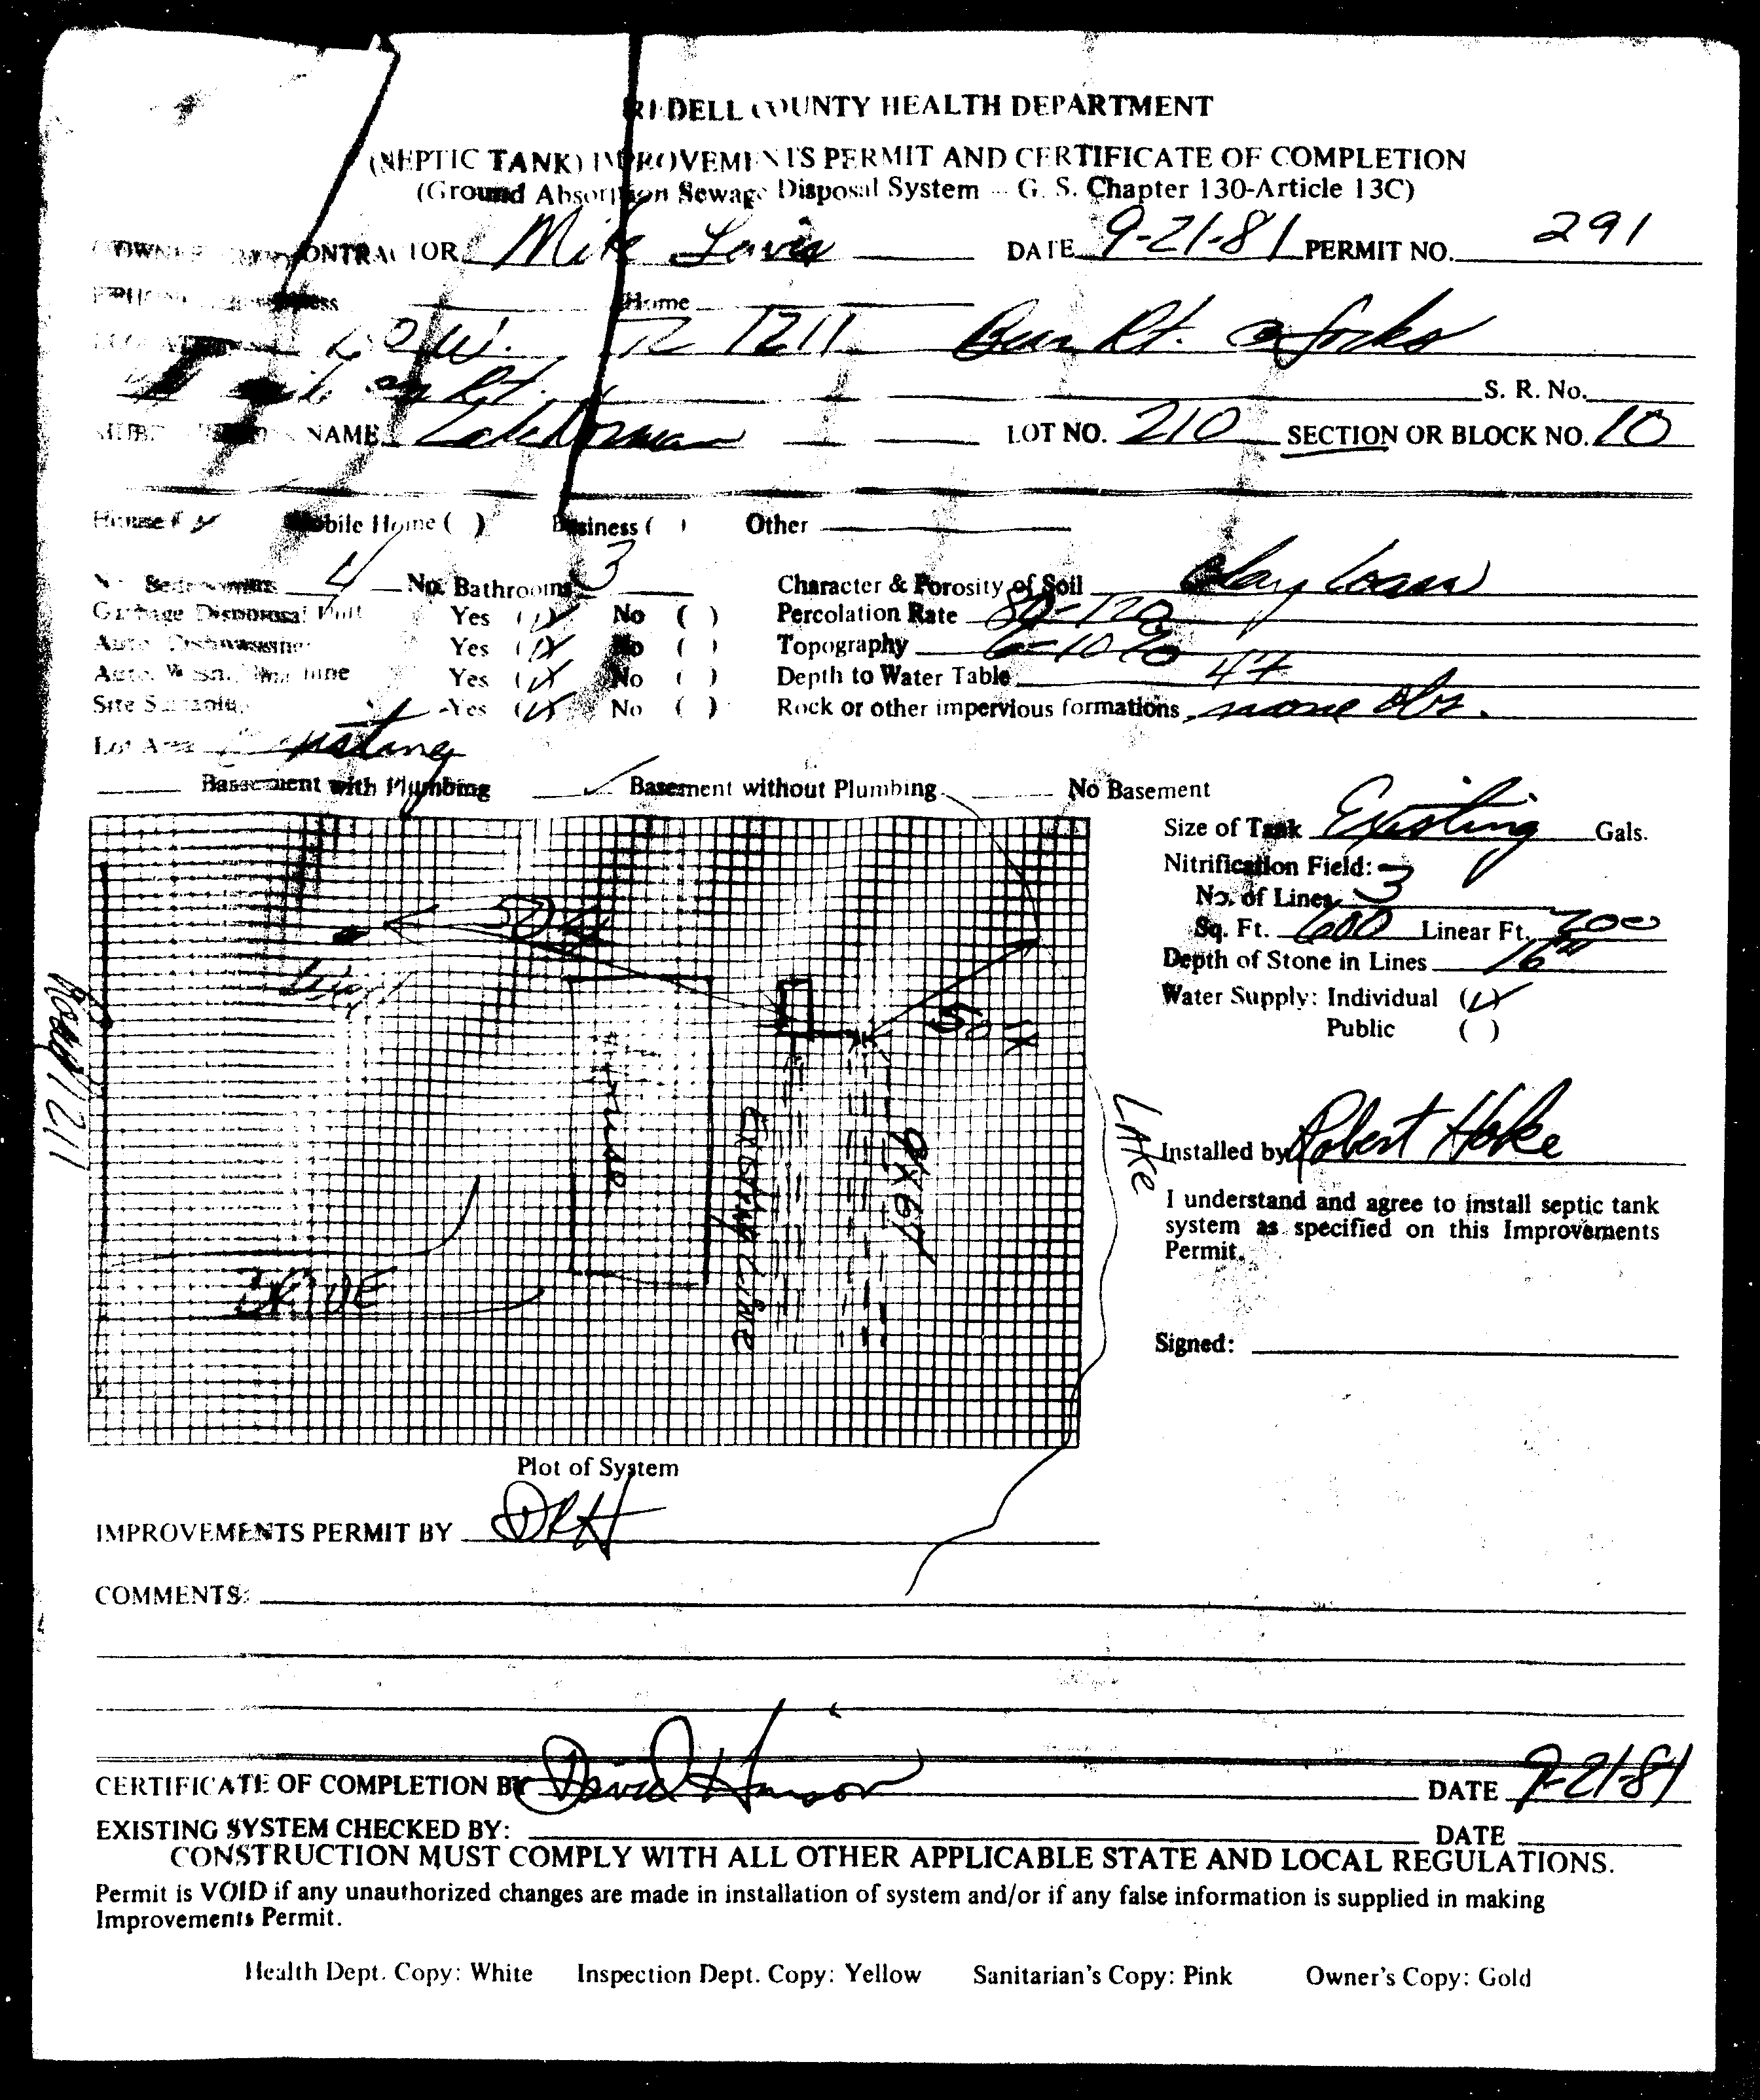 IREDELL COUNTY HEALTH DEPARTMENT
(SEPTIC TANK) IMPROVEMENTS PERMIT AND CERTIFICATE OF COMPLETION
(Ground Absorption Sewage Disposal System - G. S. Chapter 130-Article 13C)
OWNER CONTRACTOR Mike Lewis DATE 9-21-81 PERMIT NO. 291
Home
1211 Bear Rt. @ forks
on Rt. S. R. No.
NAME Lake Norman LOT NO. 210 SECTION OR BLOCK NO. 10
House Mobile Home ( ) Business ( ) Other
No. Bedrooms 4 No. Bathrooms 3 Character & Porosity of Soil Clay loam
Garbage Disposal Unit Yes (✓) No ( ) Percolation Rate 80-120
Auto. Dishwasher Yes (✓) No ( ) Topography 6-10%
Auto. Wash. Machine Yes (✓) No ( ) Depth to Water Table 4+
Site Suitable Yes (✓) No ( ) Rock or other impervious formations none obs.
Lot Area Existing
Basement with Plumbing ✓ Basement without Plumbing No Basement
Size of Tank Existing Gals.
Nitrification Field:
No. of Lines 3
Sq. Ft. 600 Linear Ft. 200
Depth of Stone in Lines 16"
Water Supply: Individual (✓)
Public ( )
Road 1211
50+
House
Existing Line
9x67
LAKE
DRIVE
Installed by Robert Hoke
I understand and agree to install septic tank
system as specified on this Improvements
Permit.
Signed:
Plot of System
IMPROVEMENTS PERMIT BY DRH
COMMENTS:
CERTIFICATE OF COMPLETION BY David Hanson DATE 9-21-81
EXISTING SYSTEM CHECKED BY: DATE
CONSTRUCTION MUST COMPLY WITH ALL OTHER APPLICABLE STATE AND LOCAL REGULATIONS.
Permit is VOID if any unauthorized changes are made in installation of system and/or if any false information is supplied in making
Improvements Permit.
Health Dept. Copy: White Inspection Dept. Copy: Yellow Sanitarian's Copy: Pink Owner's Copy: Gold